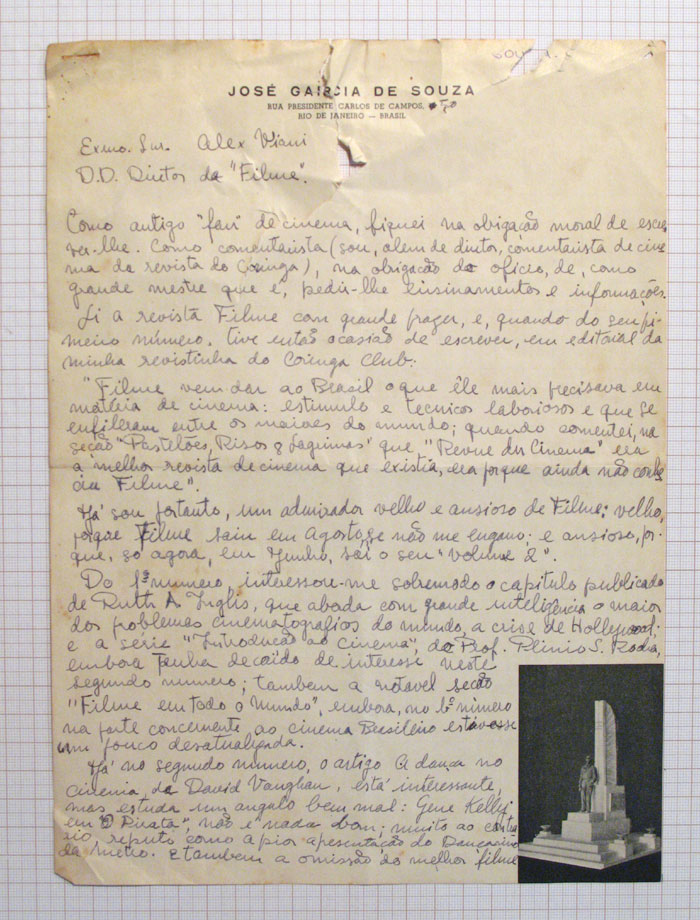 JOSÉ GARCIA DE SOUZA
RUA PRESIDENTE CARLOS DE CAMPOS,
RIO DE JANEIRO — BRASIL
Exmo. Snr. Alex Viani
D.D. Diretor da "Filme".
Como antigo "fan" de cinema, fiquei na obrigação moral de escre
ver-lhe. Como comentarista (sou, alem de diretor, comentarista de cine
ma da revista do Coringa), na obrigação do oficio, de, como
grande mestre que é, pedir-lhe ensinamentos e informações.
Li a revista Filme com grande prazer, e, quando do seu pri-
meiro número, tive então ocasião de escrever, em editorial da
minha revistinha do Coringa Club:
"Filme vem dar ao Brasil o que êle mais precisava em
matéria de cinema: estimulo e tecnicos laboriosos e que se
enfileram entre os maiores do mundo; quando comentei, na
seção "Pastelões, Risos & Lagrimas" que "Revue du Cinema" era
a melhor revista de cinema que existia, era porque ainda não conhe
cia Filme".
Já sou portanto, um admirador velho e ansioso de Filme: velho,
porque Filme saiu em Agosto, se não me engano; e ansioso, por-
que, só agora, em Junho, sai o seu "volume 2".
Do 1º numero, interessou-me sobremodo o capitulo publicado
de Ruth A. Inglis, que aborda com grande inteligência o maior
dos problemas cinematograficos do mundo, a crise de Hollywood;
e a série "Introdução ao cinema", do Prof. Plinio S. Rocha,
embora tenha decaído de interesse neste
segundo numero; tambem a notavel seção
"Filme em todo o Mundo", embora, no 1º número
na parte concernente ao cinema Brasileiro estivesse
um pouco desatualizada.
Já no segundo numero, o artigo A dança no
cinema, de David Vaughan, está interessante,
mas estuda um angulo bem mal: Gene Kelly
em "O Pirata", não é nada bom; muito ao contra
rio, reputo como a pior apresentação do Dançarino
da Metro. E tambem a omissão do melhor filme